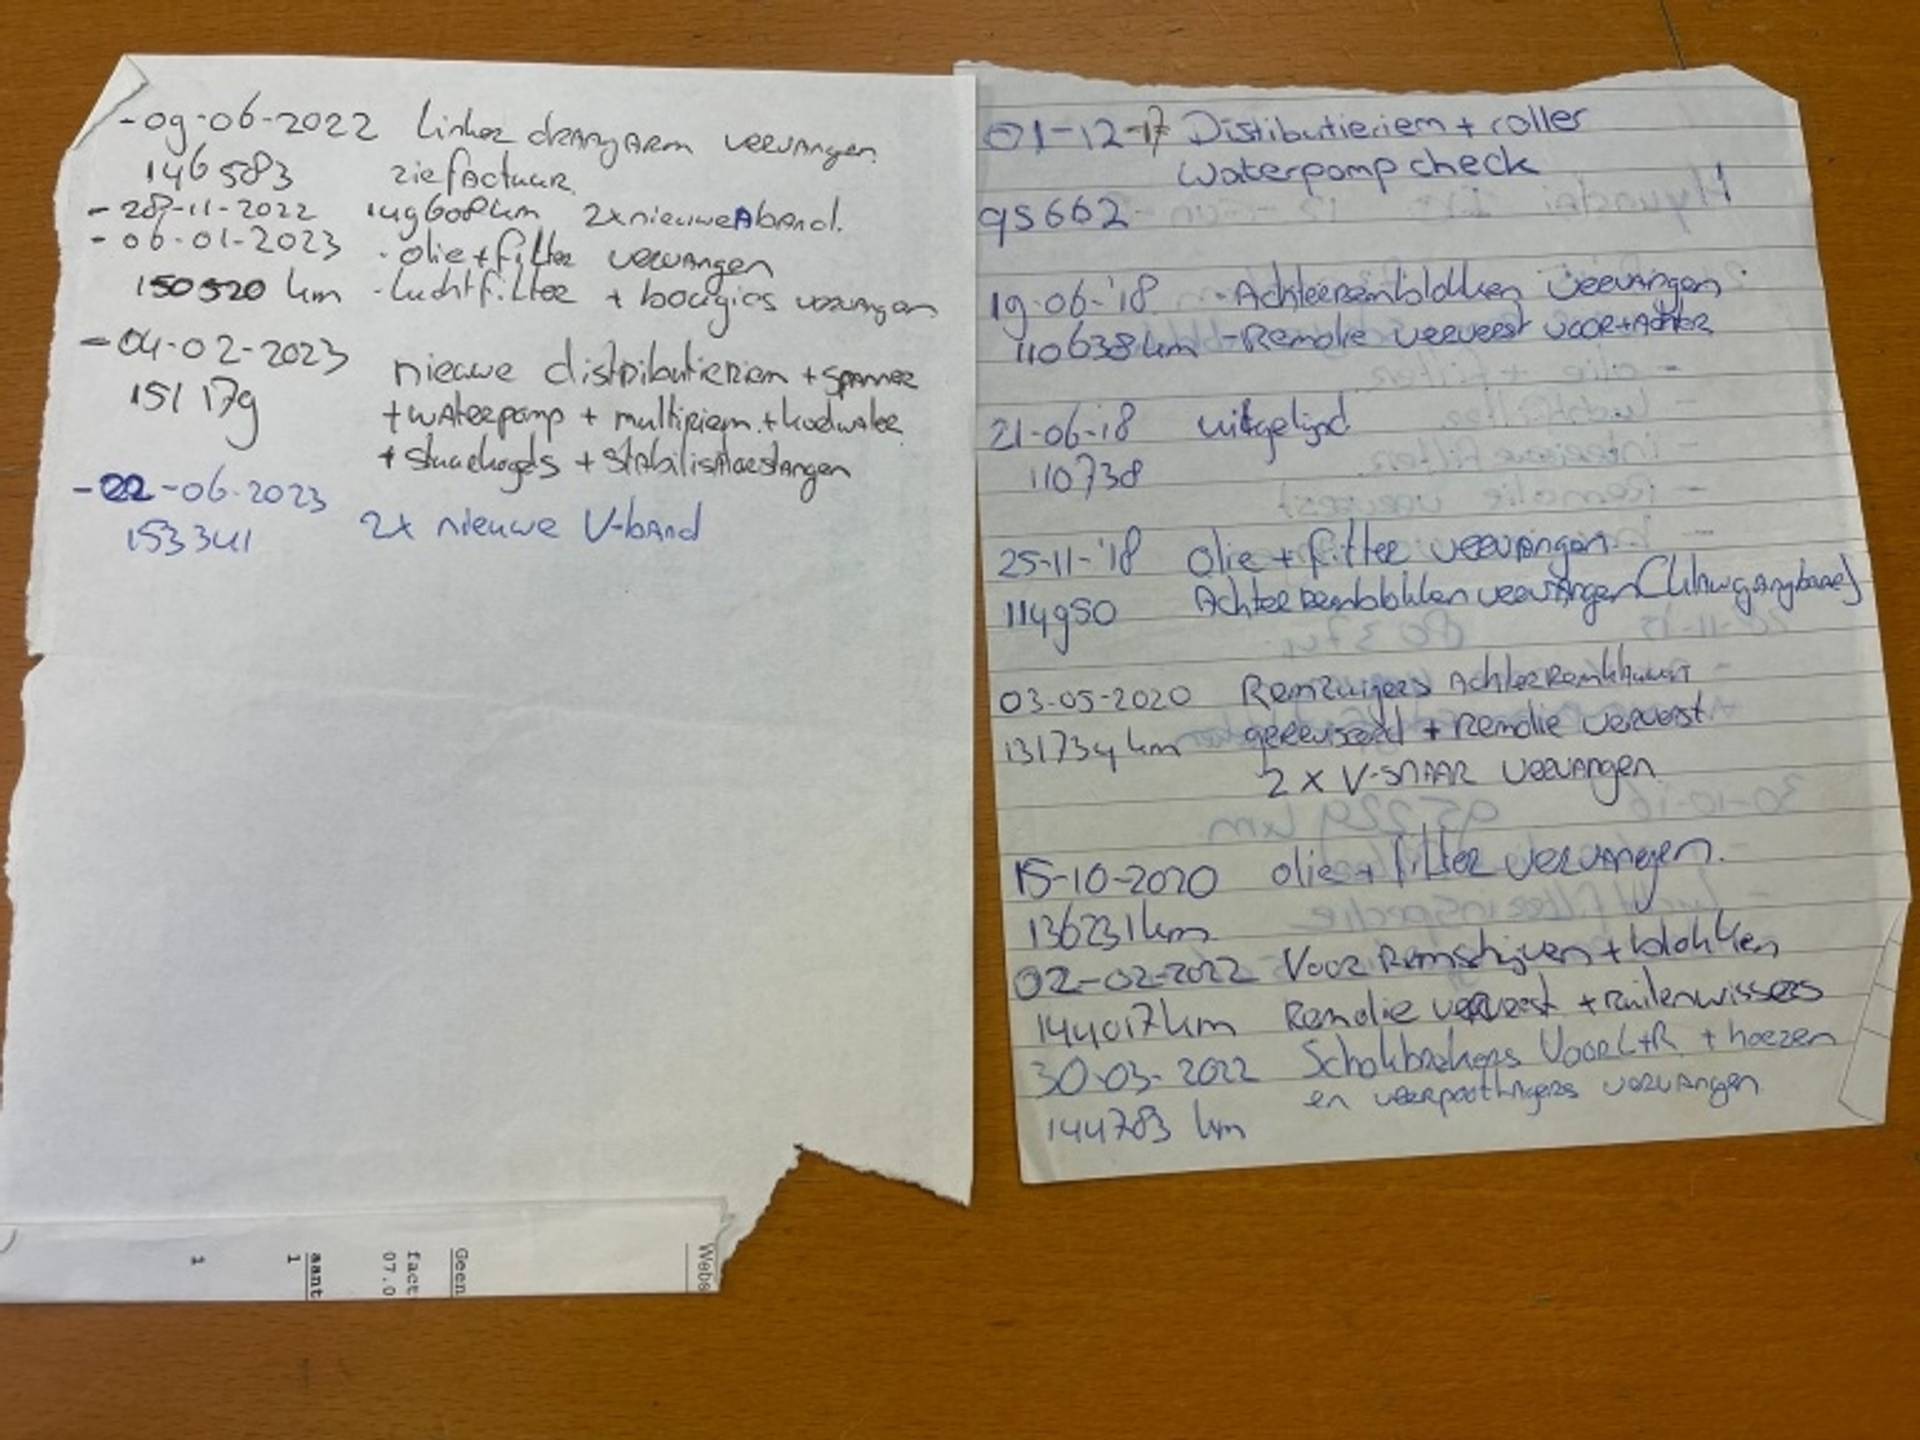 -09-06-2022 Linker draagarm vervangen
146583 zie factuur.
- 28-11-2022 149608km 2x nieuwe A band.
- 06-01-2023 - olie + filter vervangen
150520 km - luchtfilter + bougies vervangen
- 04-02-2023 nieuwe distributieriem + spanner
151179 + waterpomp + multiriem + koelwater
+ stuurkogels + stabilisatorstangen
- 22-06-2023
153341 2x nieuwe V-band
Webs
Geen
fact
07.0
aant
1
1
01-12-17 Distibutieriem + roller
Waterpomp check
95662
19-06-'18 - Achterremblokken vervangen
110638km - Remolie ververst voor+achter
21-06-18 uitgelijnd
110738
25-11-'18 olie + filter vervangen
114950 Achterremblokken vervangen
03-05-2020 Remzuigers Achterremklauw
131734 km gereviseerd + Remolie ververst
2 x V-SNAAR vervangen
15-10-2020 olie + filter vervangen.
136231km
02-02-2022 Voor Remschijven + blokken
144017km Remolie ververst + Ruitenwissers
30-03-2022 Schokbrekers Voor L+R + hoezen
en veerpootlagers vervangen
144783 km